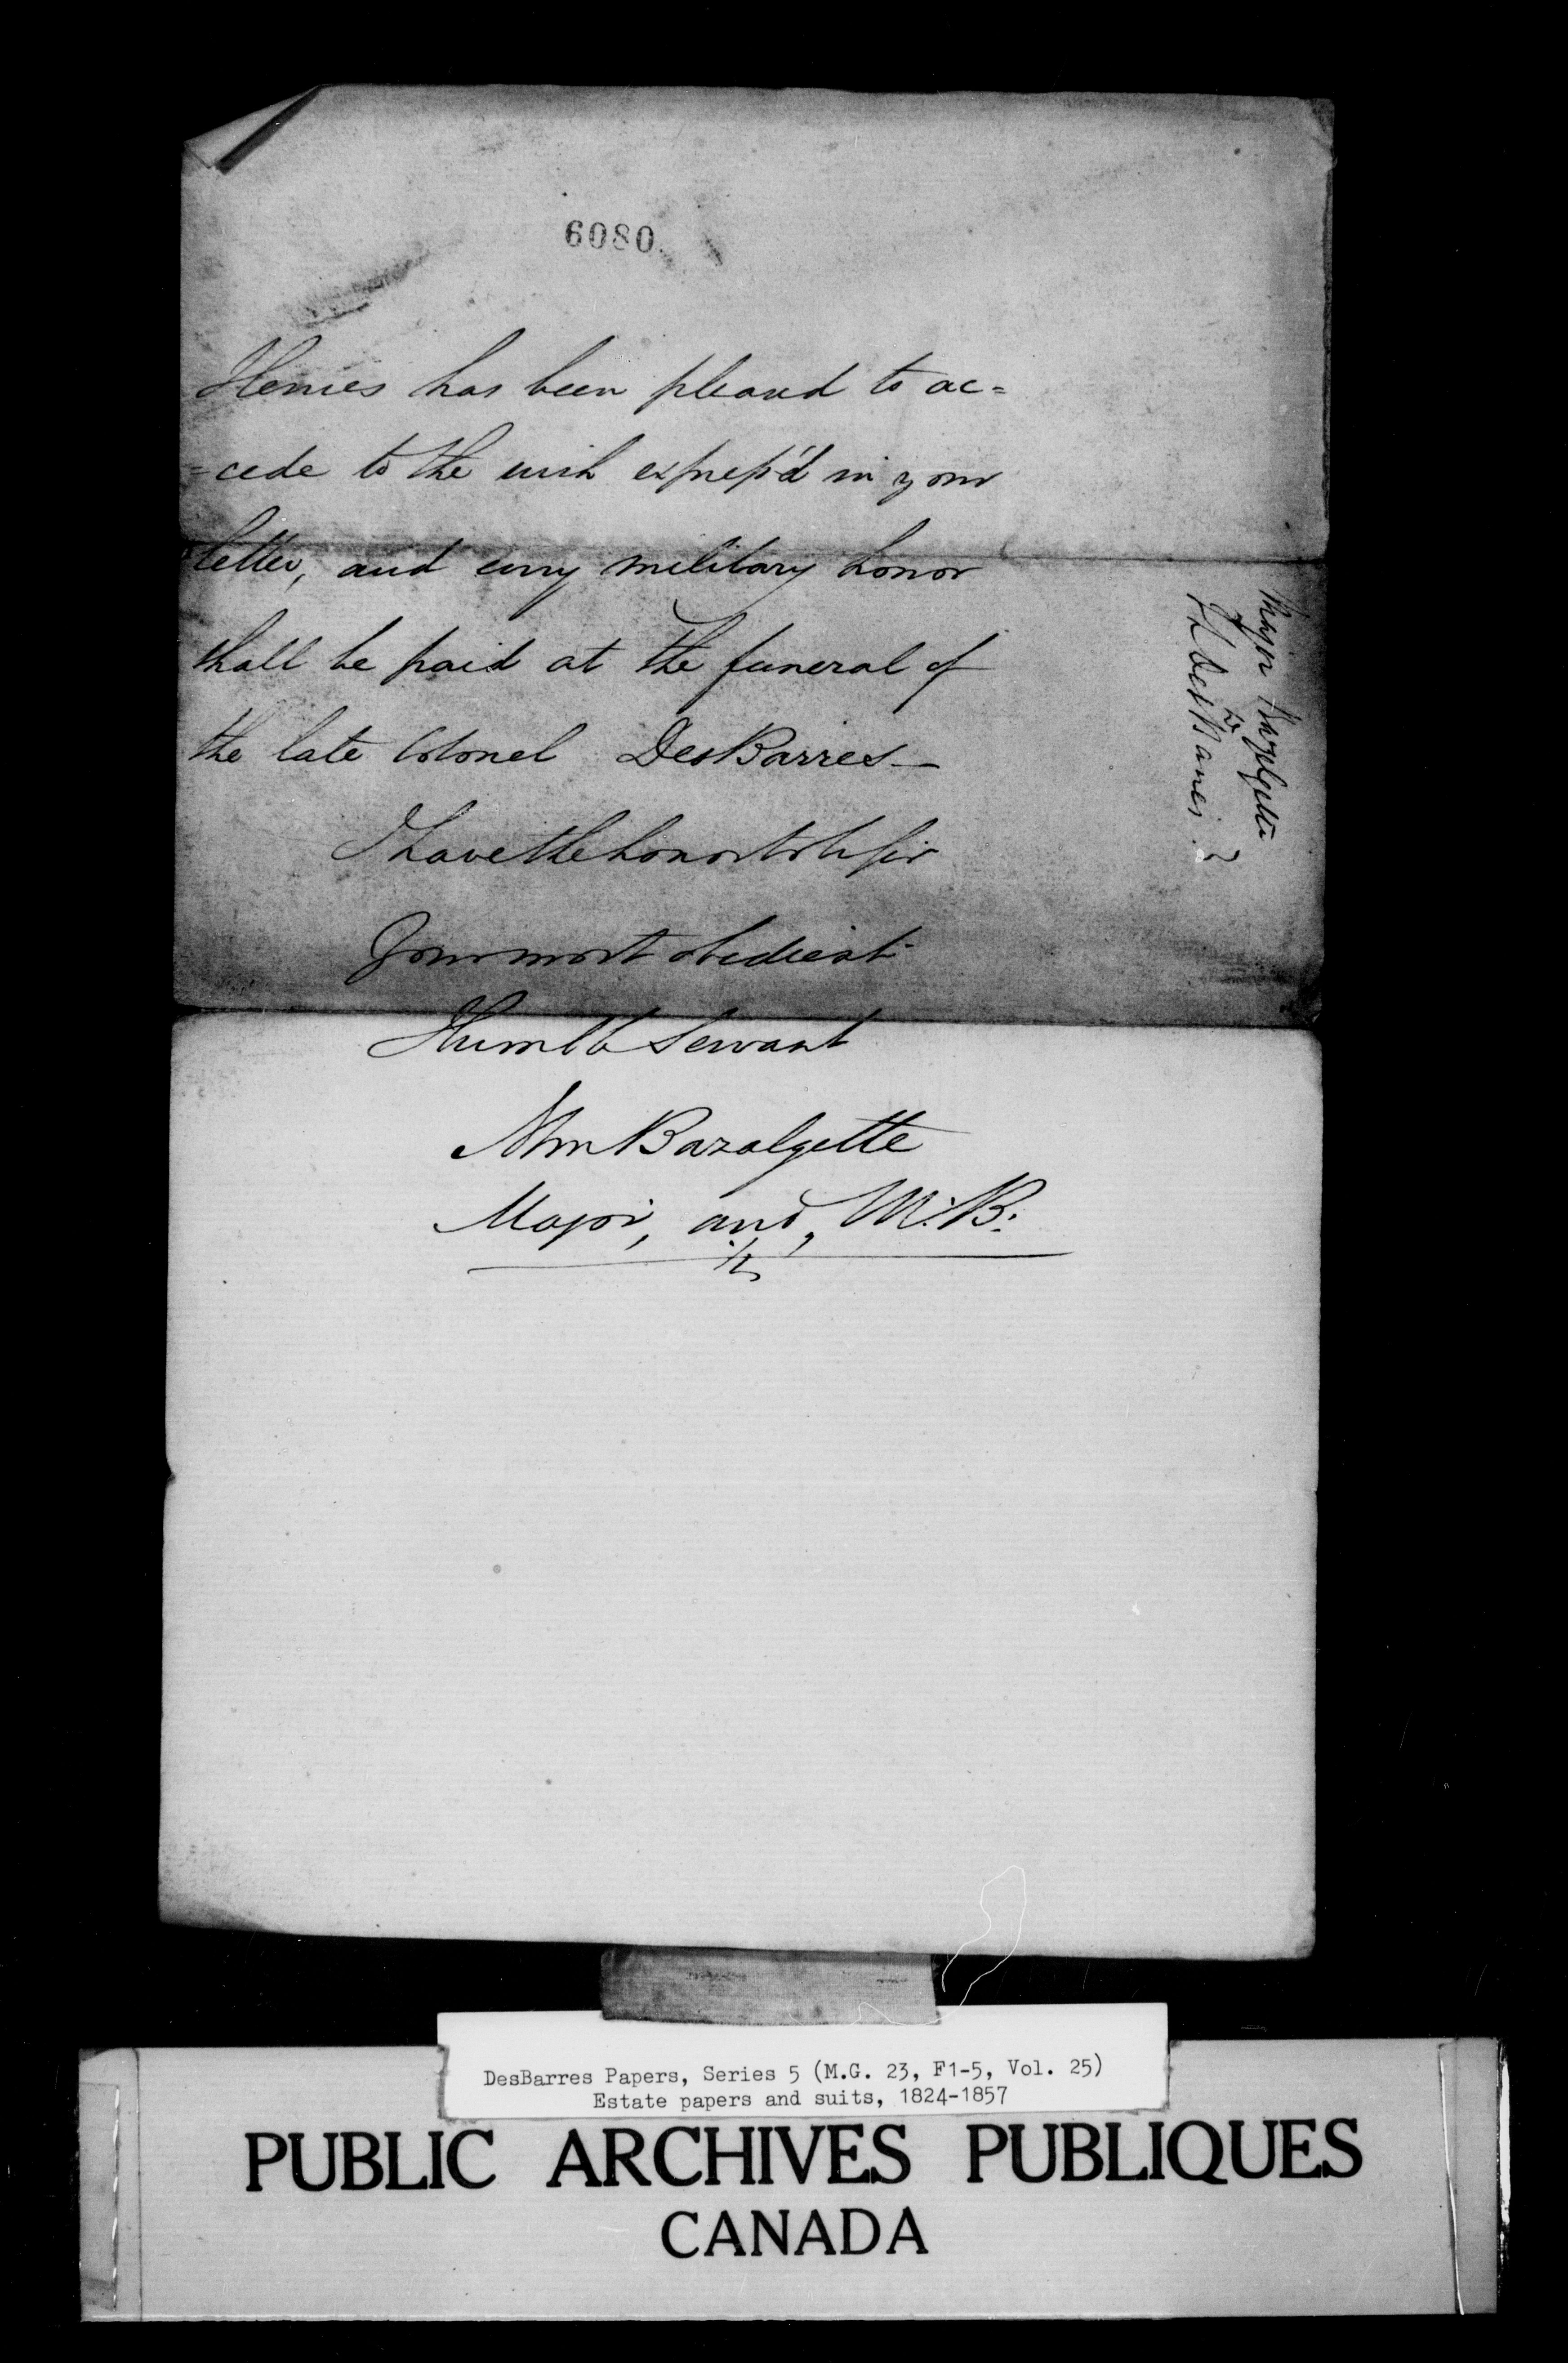 6080
has been pleased to ac=
=cede to the wish express'd in your
letter, and every military honor
shall be paid at the funeral of
the late Colonel DesBarres—
I have the honor to be Sir
Your most obedient
Humble Servant
Bazalgette
Major, and, M:B:
Major Bazalgette
to
DesBarres.
DesBarres Papers, Series 5 (M.G. 23, F1-5, Vol. 25)
Estate papers and suits, 1824-1857
PUBLIC ARCHIVES PUBLIQUES
CANADA